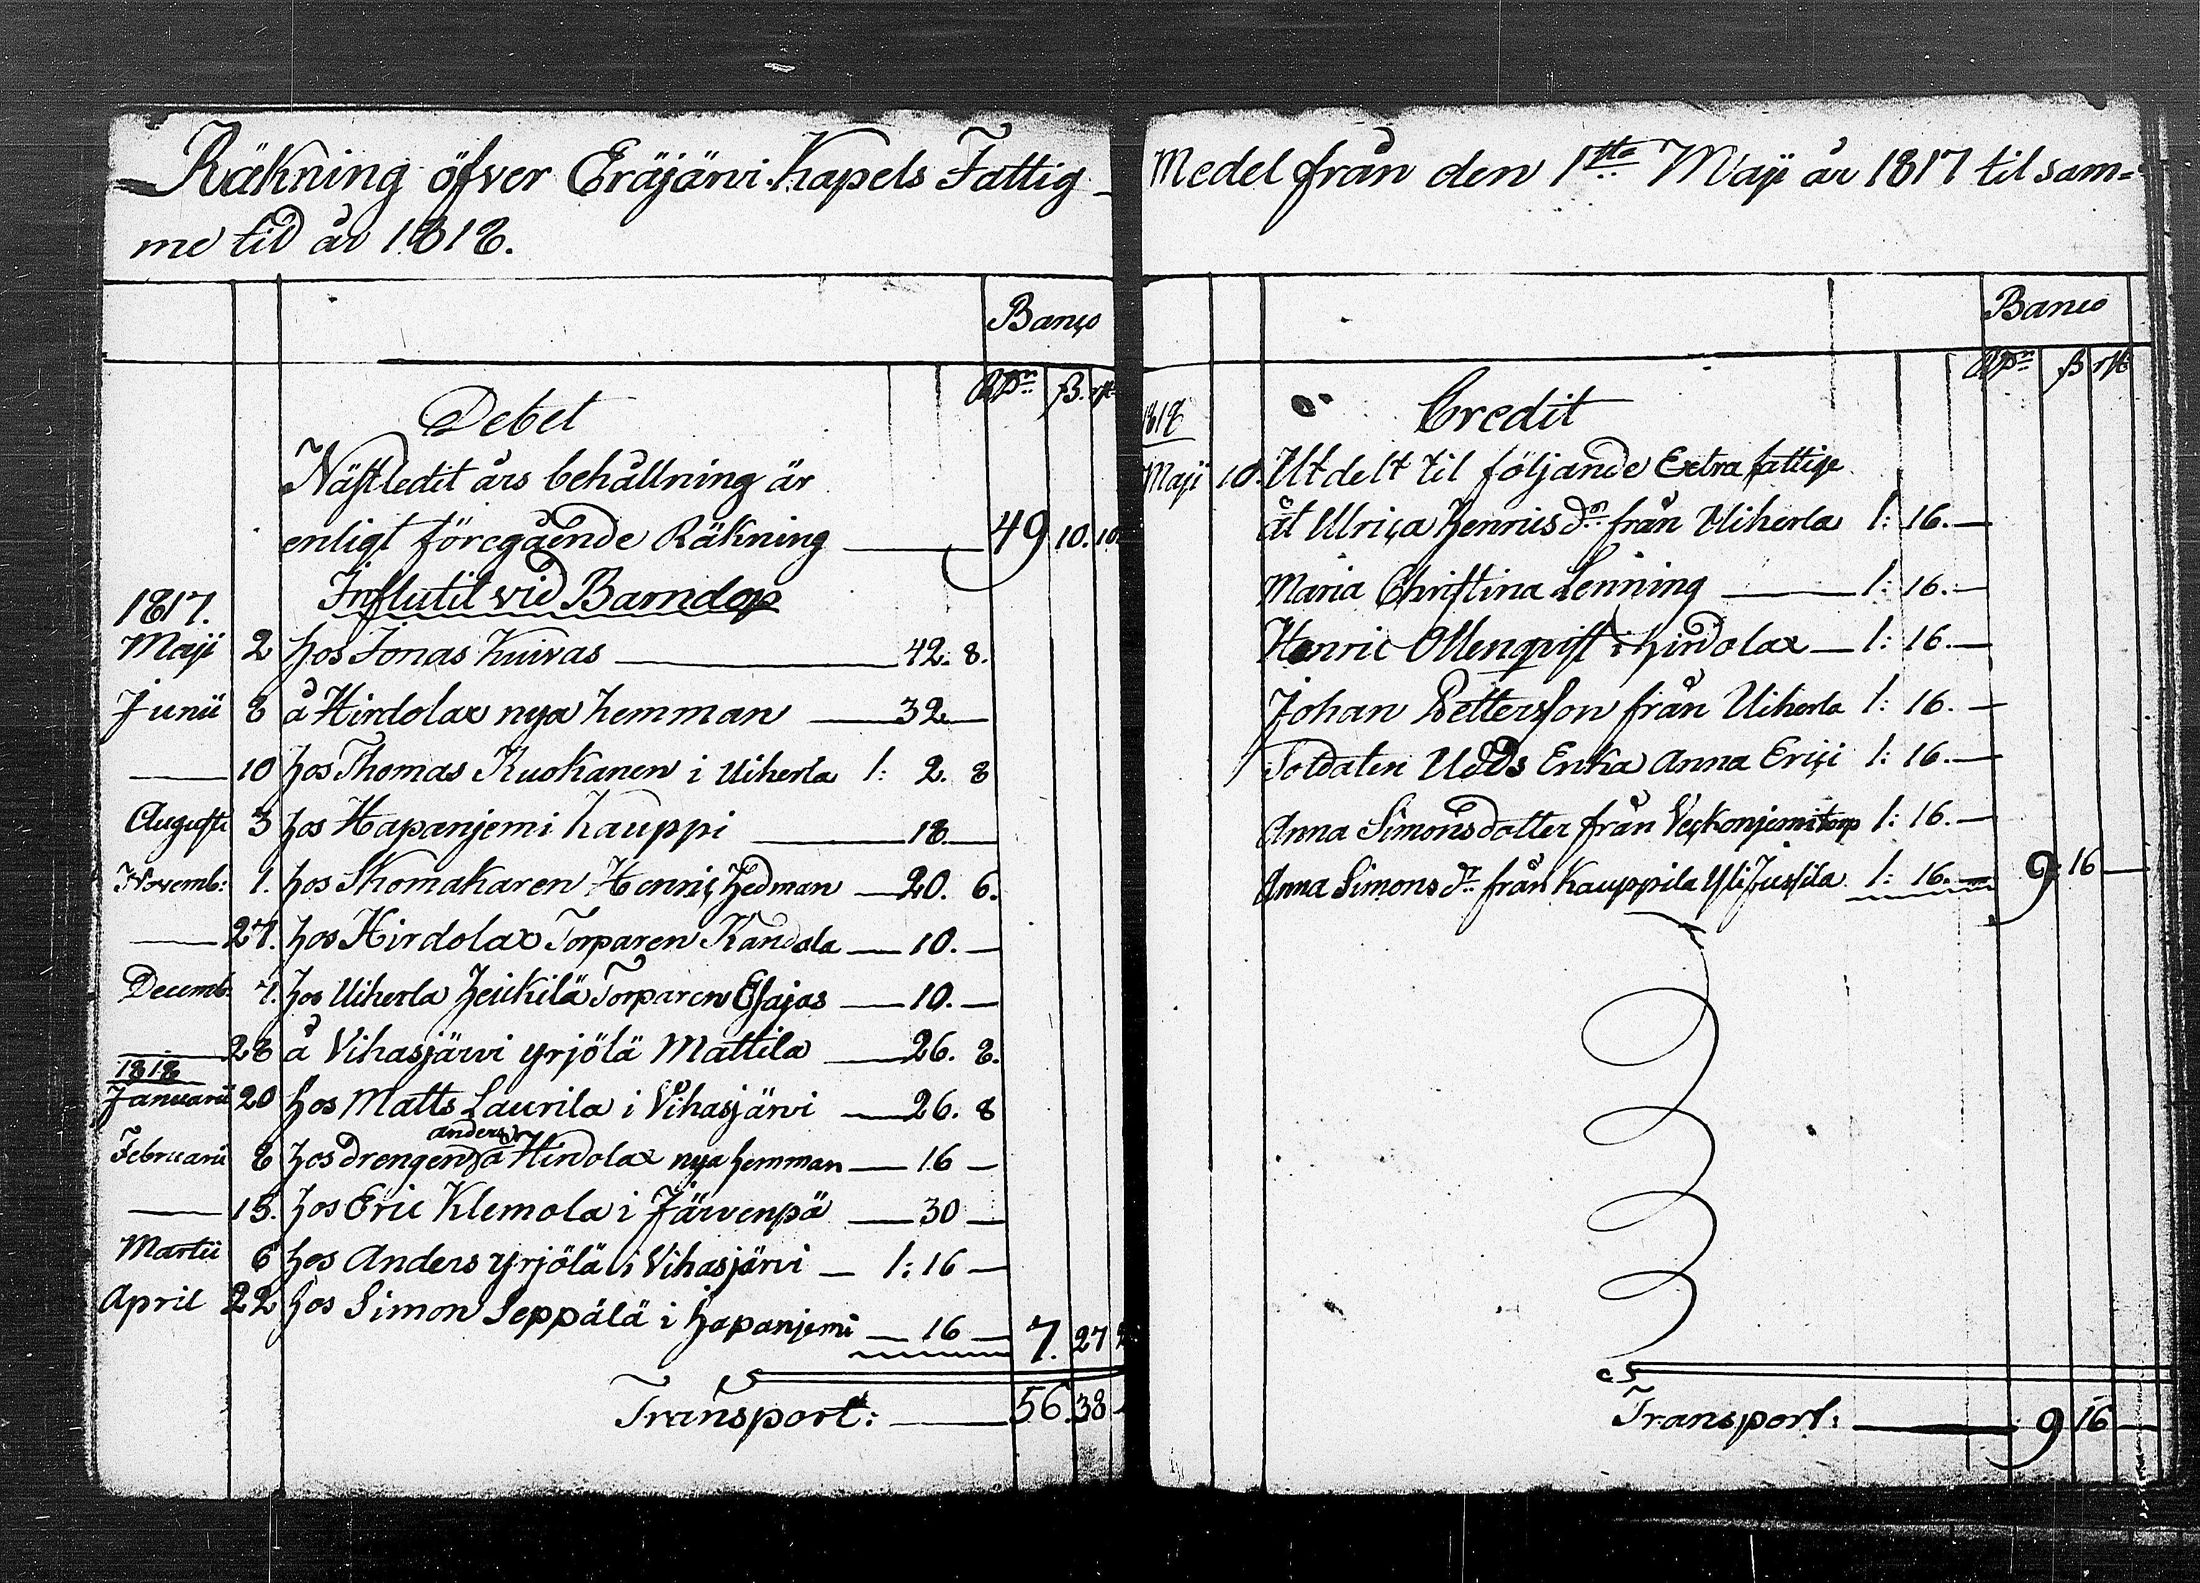 Räkning öfver Eräjärvi Kapels Fattig-
me tid år 1818.
Banco
Rdr ß. rst
Debet
Nästledit års behållning är
enligt föregående Räkning — 49 10. 10.
1817. Influtit vid Barndop
Maji 2 hos Jonas Kuivas — 42. 8.
Junii 8 å Hirdolax nya hemman — 32 —
— 10 hos Thomas Kuokanen i Uiherla 1: 2. 8
Augusti 3 hos Hapanjemi Kauppi — 18 —
Novemb: 1. hos Skomakaren Henric Hedman — 20. 6.
— 27. hos Hirdolax Torparen Kandola — 10. —
Decemb. 7. hos Uiherla Heickilä Torparen Esajas — 10. —
— 28 å Vihasjärvi Yrjölä Mattila — 26. 8.
1818
Januarii 20 hos Matts Laurila i Vihasjärvi — 26. 8
anders
Februarii 8 hos drengen å Hirdolax nya hemman — 16 —
— 15. hos Eric Klemola i Järvenpä — 30 —
Martii 6 hos Anders Yrjölä i Vihasjärvi — 1: 16 —
April 22 hos Simon Seppälä i Hapanjemi — 16 — 7. 27
Transport: — 56. 38
Medel från den 1sta Maji år 1817 til sam=
Banco
Rdr ß rst
1818 Credit
Maji 10. Utdelt til följande Extra fattige
åt Ulrica Henricsdr från Uiherla 1: 16. —
Maria Christina Lenning — 1: 16. —
Henric Ollenqvist i Hirdolax — 1: 16. —
Johan Pettersson från Uiherla 1: 16. —
Soldaten Udds Enka Anna Erici 1: 16. —
Anna Simonsdotter från Veckonjemi torp 1: 16. —
Anna Simonsdr från Kauppila Yli Jussila 1: 16. — 9 16 —
Transport: — 9 16 —